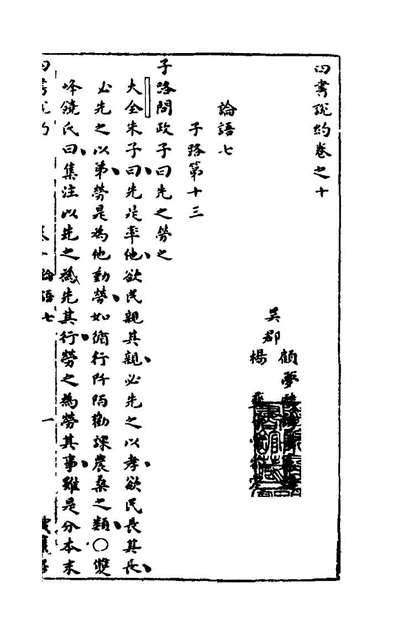 四書說約卷之十
吳郡
顧夢
楊
論語七
子路第十三
子路問政子曰先之勞之
大全朱子曰先是率他欲民親其親必先之以孝欲民長其長
必先之以弟勞是為他勤勞如循行阡陌勸課農桑之類〇雙
峰饒氏曰集注以先之為先其行勞之為勞其事雖是分本末
四書說約
論語七
一